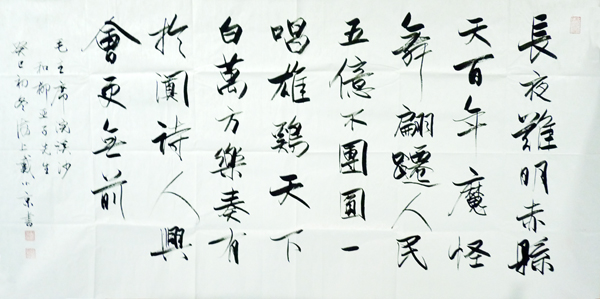 長夜難明赤縣
天百年魔怪
舞翩躚人民
五億不團圓一
唱雄鷄天下
白萬方樂奏有
於闐詩人興
會更無前
毛主席浣溪沙
和柳亞子先生
癸巳初冬滬上戴小京書